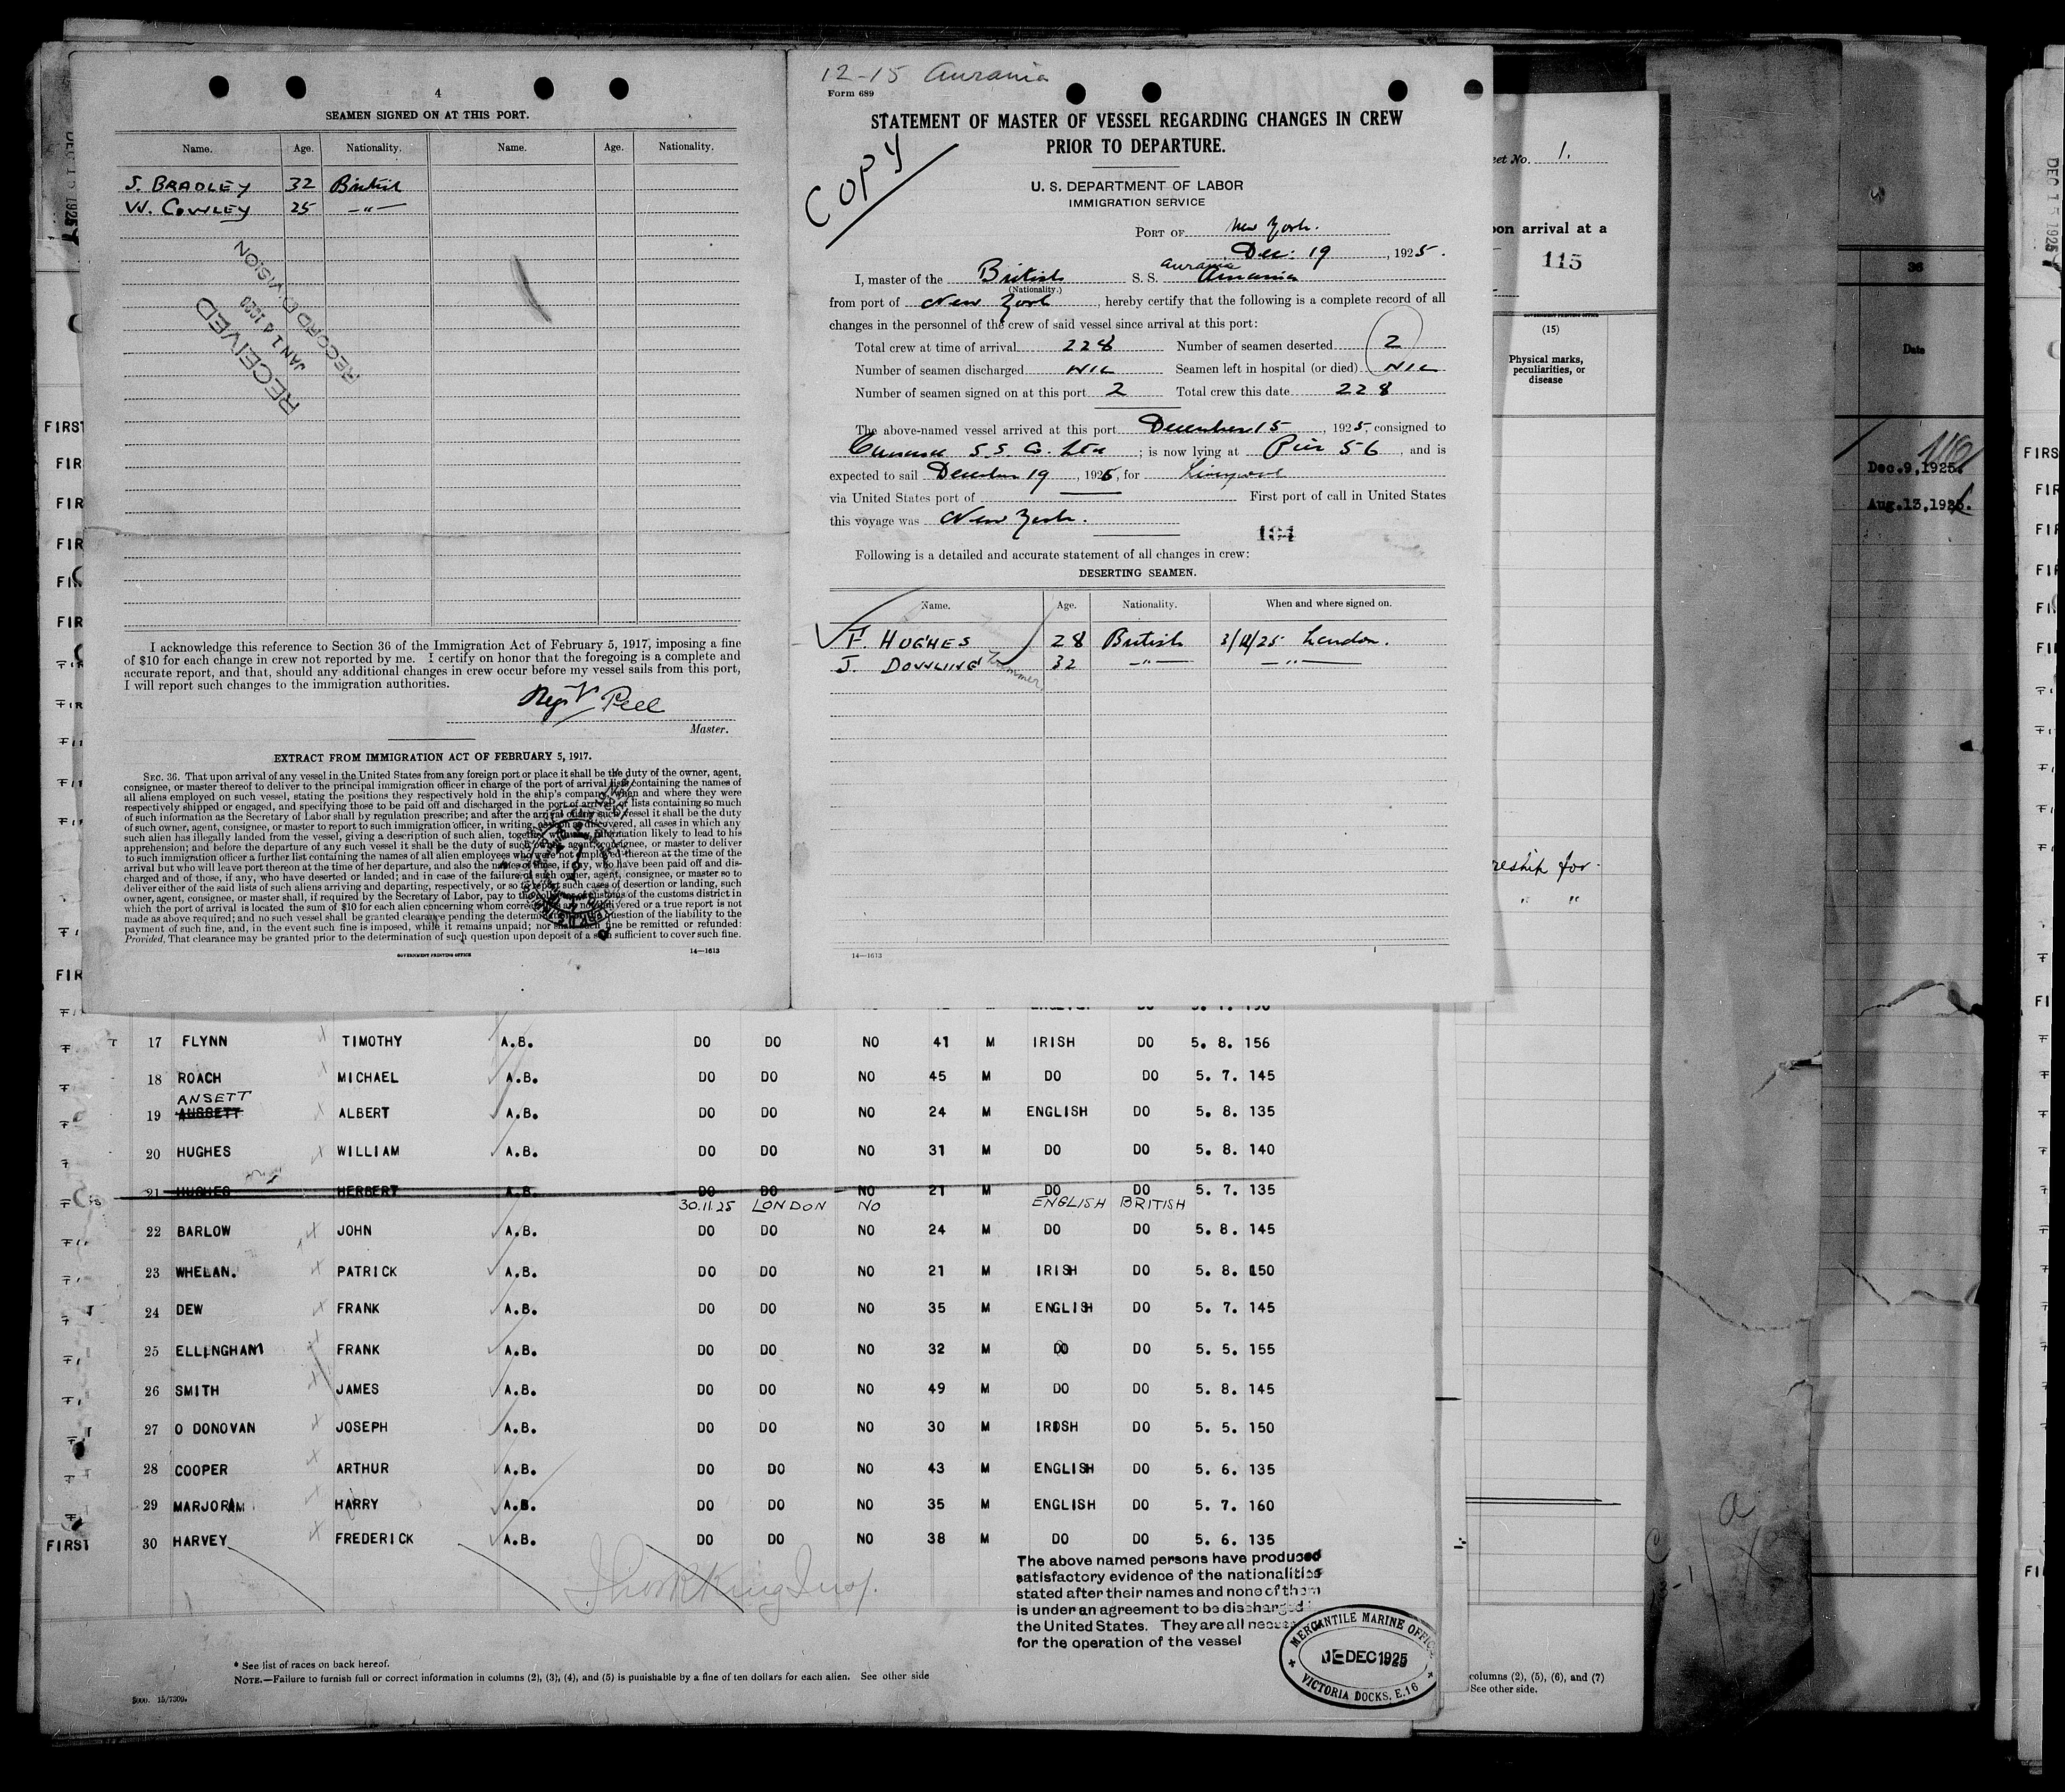 4
SEAMEN SIGNED ON AT THIS PORT.
Name. Age. Nationality. Name. Age. Nationality.
S. BRADLEY 32 British
W. COWLEY 25 —"—
RECEIVED
JAN 1
RECORD DIVISION
I acknowledge this reference to Section 36 of the Immigration Act of February 5, 1917, imposing a fine
of $10 for each change in crew not reported by me. I certify on honor that the foregoing is a complete and
accurate report, and that, should any additional changes in crew occur before my vessel sails from this port,
I will report such changes to the immigration authorities.
Peel
Master.
EXTRACT FROM IMMIGRATION ACT OF FEBRUARY 5, 1917.
SEC. 36. That upon arrival of any vessel in the United States from any foreign port or place it shall be the duty of the owner, agent,
consignee, or master thereof to deliver to the principal immigration officer in charge of the port of arrival lists containing the names of
all aliens employed on such vessel, stating the positions they respectively hold in the ship's company, when and where they were
respectively shipped or engaged, and specifying those to be paid off and discharged in the port of arrival; or lists containing so much
of such information as the Secretary of Labor shall by regulation prescribe; and after the arrival of any such vessel it shall be the duty
of such owner, agent, consignee, or master to report to such immigration officer, in writing, as soon as discovered, all cases in which any
such alien has illegally landed from the vessel, giving a description of such alien, together with any information likely to lead to his
apprehension; and before the departure of any such vessel it shall be the duty of such owner, agent, consignee, or master to deliver
to such immigration officer a further list containing the names of all alien employees who were not employed thereon at the time of the
arrival but who will leave port thereon at the time of her departure, and also the names of those, if any, who have been paid off and dis-
charged and of those, if any, who have deserted or landed; and in case of the failure of such owner, agent, consignee, or master so to
deliver either of the said lists of such aliens arriving and departing, respectively, or so to report such cases of desertion or landing, such
owner, agent, consignee, or master shall, if required by the Secretary of Labor, pay to the of customs of the customs district in
which the port of arrival is located the sum of $10 for each alien concerning whom correct are not delivered or a true report is not
made as above required; and no such vessel shall be granted clearance pending the question of the liability to the
payment of such fine, and, in the event such fine is imposed, while it remains unpaid; nor shall such fine be remitted or refunded:
Provided, That clearance may be granted prior to the determination of such question upon deposit of a sum sufficient to cover such fine.
GOVERNMENT PRINTING OFFICE 14—1613
12-15 Aurania
Form 689
STATEMENT OF MASTER OF VESSEL REGARDING CHANGES IN CREW
PRIOR TO DEPARTURE.
COPY
U. S. DEPARTMENT OF LABOR
IMMIGRATION SERVICE
PORT OF New York.
Dec. 19, 1925.
Aurania
I, master of the British S. S.
(Nationality.)
from port of New York, hereby certify that the following is a complete record of all
changes in the personnel of the crew of said vessel since arrival at this port:
Total crew at time of arrival 228 Number of seamen deserted 2
Number of seamen discharged NIL Seamen left in hospital (or died) NIL
Number of seamen signed on at this port 2 Total crew this date 228
The above-named vessel arrived at this port December 15, 1925 consigned to
Cunard S.S. Co. Ltd; is now lying at Pier 56, and is
expected to sail December 19, 1925, for Liverpool
via United States port of First port of call in United States
this voyage was New York.
104
Following is a detailed and accurate statement of all changes in crew:
DESERTING SEAMEN.
Name. Age. Nationality. When and where signed on.
F. HUGHES 28 British 3/12/25 London.
J. DOWLING 32 —"— —"—
Trimmer
14—1613
eet No. 1.
on arrival at a
115
GOVERNMENT PRINTING OFFICE
(15)
Physical marks,
peculiarities, or
disease
for
" "
36
Date
Dec.9,1925.
Aug.13,192
DEC 15 1925
17 FLYNN TIMOTHY A.B. DO DO NO 41 M IRISH DO 5. 8. 156
18 ROACH MICHAEL A.B. DO DO NO 45 M DO DO 5. 7. 145
ANSETT
19 AUSSETT ALBERT A.B. DO DO NO 24 M ENGLISH DO 5. 8. 135
20 HUGHES WILLIAM A.B. DO DO NO 31 M DO DO 5. 8. 140
21 HUGHES HERBERT A.B. DO DO NO 21 M DO DO 5. 7. 135
30.11.25 LONDON NO ENGLISH BRITISH
22 BARLOW JOHN A.B. DO DO NO 24 M DO DO 5. 8. 145
23 WHELAN. PATRICK A.B. DO DO NO 21 M IRISH DO 5. 8. 150
24 DEW FRANK A.B. DO DO NO 35 M ENGLISH DO 5. 7. 145
25 ELLINGHAM FRANK A.B. DO DO NO 32 M DO DO 5. 5. 155
26 SMITH JAMES A.B. DO DO NO 49 M DO DO 5. 8. 145
27 O DONOVAN JOSEPH A.B. DO DO NO 30 M IRISH DO 5. 5. 150
28 COOPER ARTHUR A.B. DO DO NO 43 M ENGLISH DO 5. 6. 135
29 MARJORAM HARRY A.B. DO DO NO 35 M ENGLISH DO 5. 7. 160
FIRST 30 HARVEY FREDERICK A.B. DO DO NO 38 M DO DO 5. 6. 135
The above named persons have produced
satisfactory evidence of the nationalities
stated after their names and none of them
is under an agreement to be discharged
the United States. They are all
for the operation of the vessel
MERCANTILE MARINE OFFICE
DEC 1925
VICTORIA DOCKS, E.16
* See list of races on back hereof.
NOTE.—Failure to furnish full or correct information in columns (2), (3), (4), and (5) is punishable by a fine of ten dollars for each alien. See other side
5000. 15/7309.
columns (2), (5), (6), and (7)
See other side.